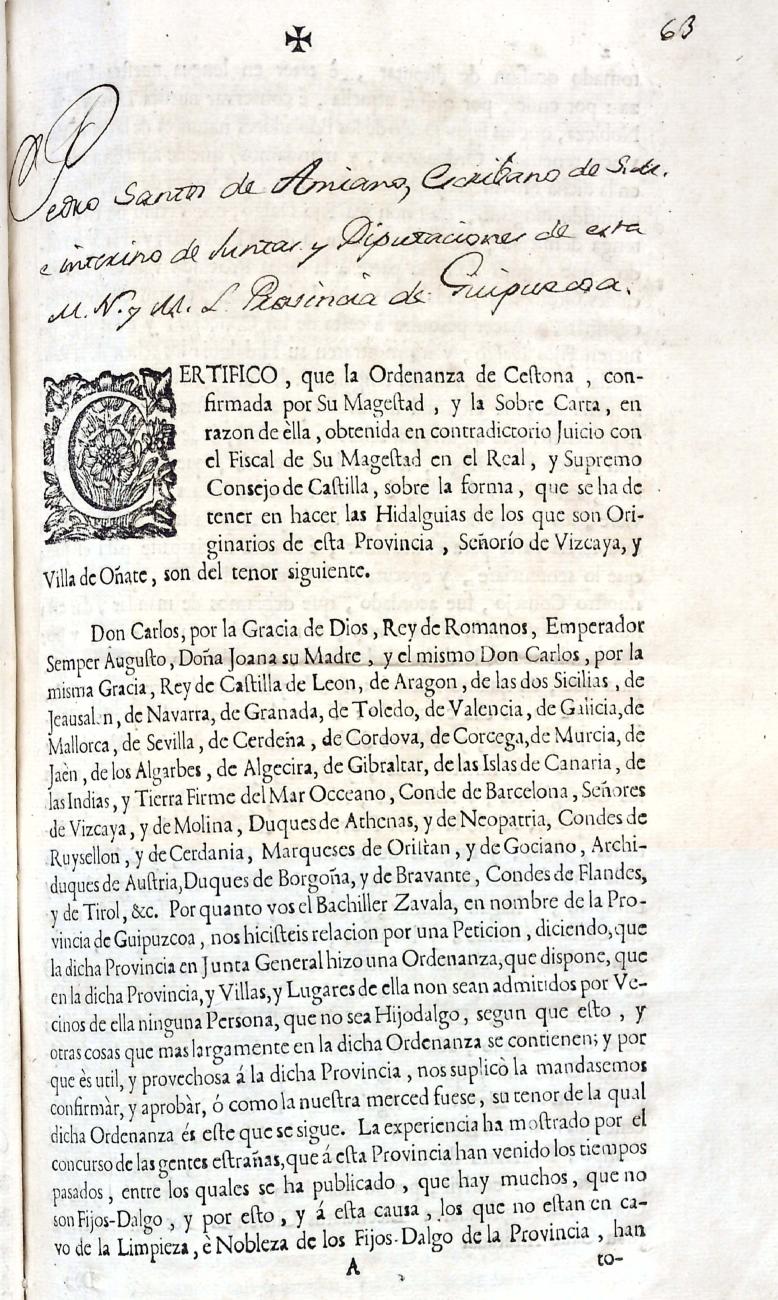 ✠
63
Pedro Santos de Amiano, Escribano de S. M.
e interino de Juntas y Diputaciones de esta
M. N. y M. L. Provincia de Guipuzcoa.
CERTIFICO, que la Ordenanza de Ceſtona, con-
firmada por Su Mageſtad, y la Sobre Carta, en
razon de èlla, obtenida en contradictorio Juicio con
el Fiscal de Su Mageſtad en el Real, y Supremo
Consejo de Caſtilla, sobre la forma, que se ha de
tener en hacer las Hidalguias de los que son Ori-
ginarios de eſta Provincia, Señorío de Vizcaya, y
Villa de Oñate, son del tenor siguiente.
Don Carlos, por la Gracia de Dios, Rey de Romanos, Emperador
Semper Auguſto, Doña Joana su Madre, y el mismo Don Carlos, por la
misma Gracia, Rey de Caſtilla de Leon, de Aragon, de las dos Sicilias, de
Jeausal.n, de Navarra, de Granada, de Toledo, de Valencia, de Galicia, de
Mallorca, de Sevilla, de Cerdeña, de Cordova, de Corcega, de Murcia, de
Jaèn, de los Algarbes, de Algecira, de Gibraltar, de las Islas de Canaria, de
las Indias, y Tierra Firme del Mar Occeano, Conde de Barcelona, Señores
de Vizcaya, y de Molina, Duques de Athenas, y de Neopatria, Condes de
Ruysellon, y de Cerdania, Marqueses de Oriſtan, y de Gociano, Archi-
duques de Auſtria, Duques de Borgoña, y de Bravante, Condes de Flandes,
y de Tirol, &c. Por quanto vos el Bachiller Zavala, en nombre de la Pro-
vincia de Guipuzcoa, nos hiciſteis relacion por una Peticion, diciendo, que
la dicha Provincia en Junta General hizo una Ordenanza, que dispone, que
en la dicha Provincia, y Villas, y Lugares de ella non sean admitidos por Ve-
cinos de ella ninguna Persona, que no sea Hijodalgo, segun que eſto, y
otras cosas que mas largamente en la dicha Ordenanza se contienen; y por
que ès util, y provechosa á la dicha Provincia, nos suplicò la mandasemos
confirmàr, y aprobàr, ó como la nueſtra merced fuese, su tenor de la qual
dicha Ordenanza és eſte que se sigue. La experiencia ha moſtrado por el
concurso de las gentes eſtrañas, que á eſta Provincia han venido los tiempos
pasados, entre los quales se ha publicado, que hay muchos, que no
son Fijos-Dalgo, y por eſto, y á eſta causa, los que no eſtan en ca-
vo de la Limpieza, è Nobleza de los Fijos-Dalgo de la Provincia, han
A
to-